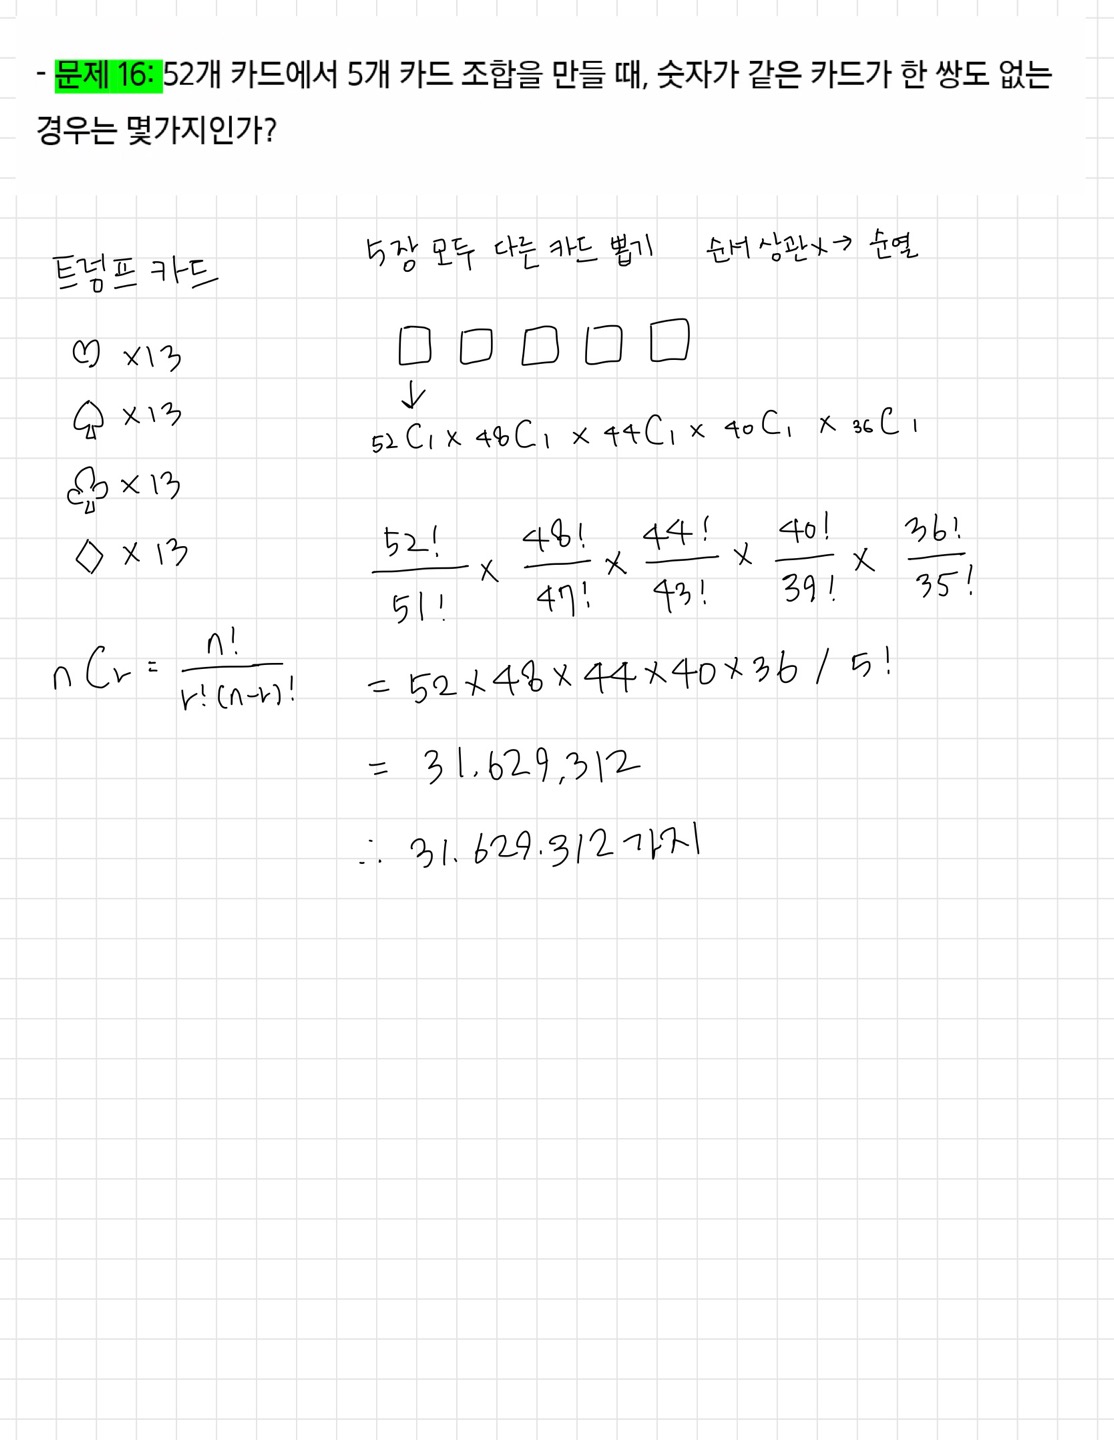 - 문제 16: 52개 카드에서 5개 카드 조합을 만들 때, 숫자가 같은 카드가 한 쌍도 없는
경우는 몇가지인가?
트럼프 카드
♡ ×13
♤ ×13
♧ ×13
◇ × 13
nCr = n! / r!(n-r)!
5장 모두 다른 카드 뽑기 순서 상관x → 순열
□ □ □ □ □
↓
52C1 × 48C1 × 44C1 × 40C1 × 36C1
52!/51! × 48!/47! × 44!/43! × 40!/39! × 36!/35!
= 52×48×44×40×36 / 5!
= 31.629,312
∴ 31.629.312가지